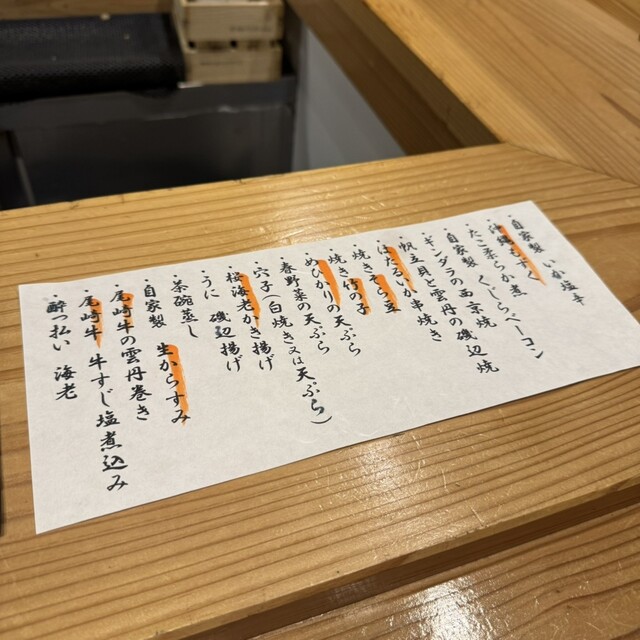 ・自家製 いか塩辛
・沖縄もずく
・たこ柔らか煮
・自家製 くじらベーコン
・ギンダラの西京焼
・帆立貝と雲丹の磯辺焼
・ほたるいか串焼き
・焼きそら豆
・焼き竹の子
・めひかりの天ぷら
・春野菜の天ぷら
・穴子(白焼き又は天ぷら)
・桜海老かき揚げ
・うに 磯辺揚げ
・茶碗蒸し
・自家製 生からすみ
・尾崎牛の雲丹巻き
・尾崎牛 牛すじ塩煮込み
・酔っ払い 海老